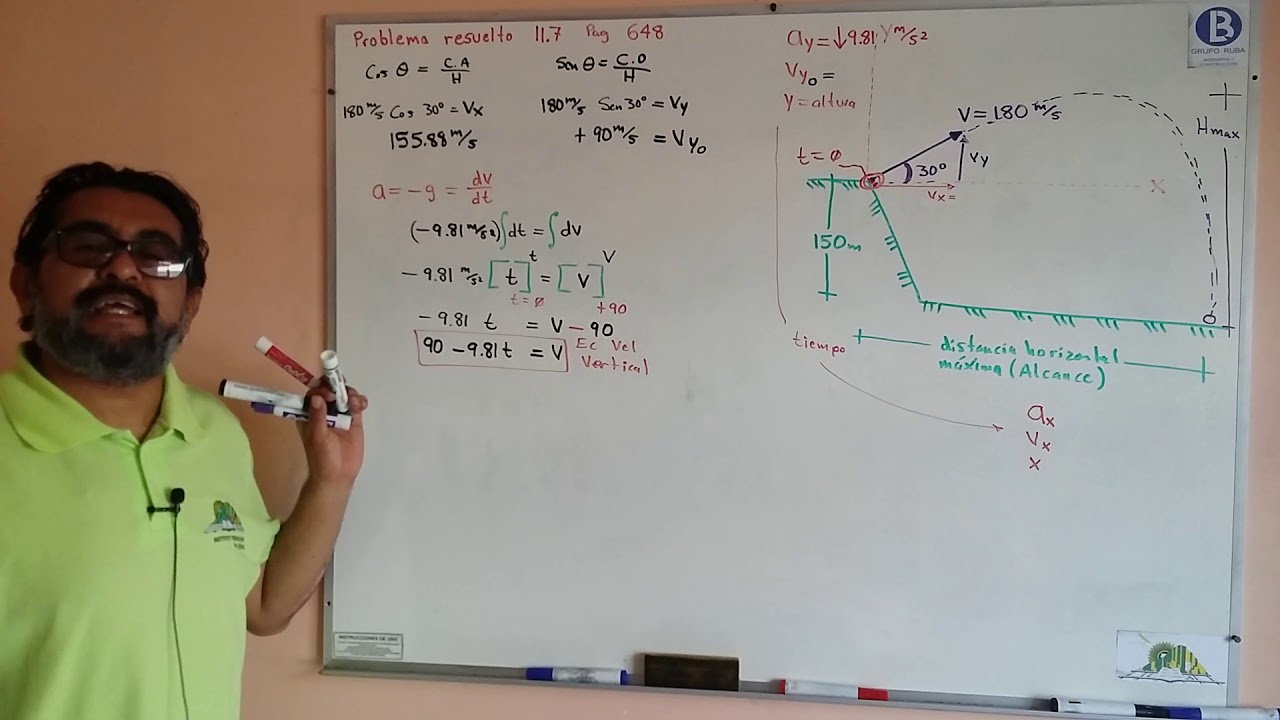 Problema resuelto 11.7 Pag 648
Cos θ = C.A / H
Sen θ = C.O / H
180 m/s Cos 30° = Vx
180 m/s Sen 30° = Vy
155.88 m/s
+ 90 m/s = Vy₀
a = -g = dv/dt
(-9.81 m/s²) ∫dt = ∫dv
-9.81 m/s² [t]ᵗ t=ø = [v]ⱽ +90
-9.81 t = V - 90
90 - 9.81 t = V
Ec Vel
Vertical
ay = ↓9.81 m/s²
Y
Vy₀ =
y = altura
V = 180 m/s
t = ø
30°
Vy
Vx =
X
Hmax
150m
tiempo
distancia horizontal
máxima (Alcance)
ax
Vx
x
B
GRUPO RUBA
INSTRUCCIONES DE USO